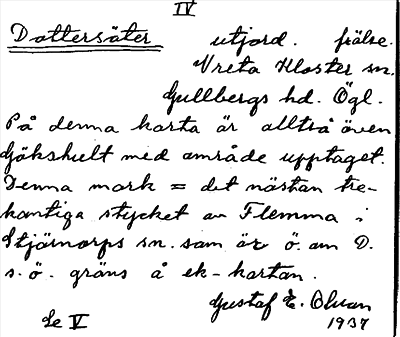 IV
Dottersäter utjord. frälse.
Vreta Kloster sn.
Gullbergs hd. Ögl.
På denna karta är alltså även
Gökshult med område upptaget.
Denna mark = det nästan tre-
kantiga stycket av Flemma i
Stjärnorps sn. som är ö. om D.
s.ö. gräns å ek-kartan.
Gustaf E. Olson
Se V 1937